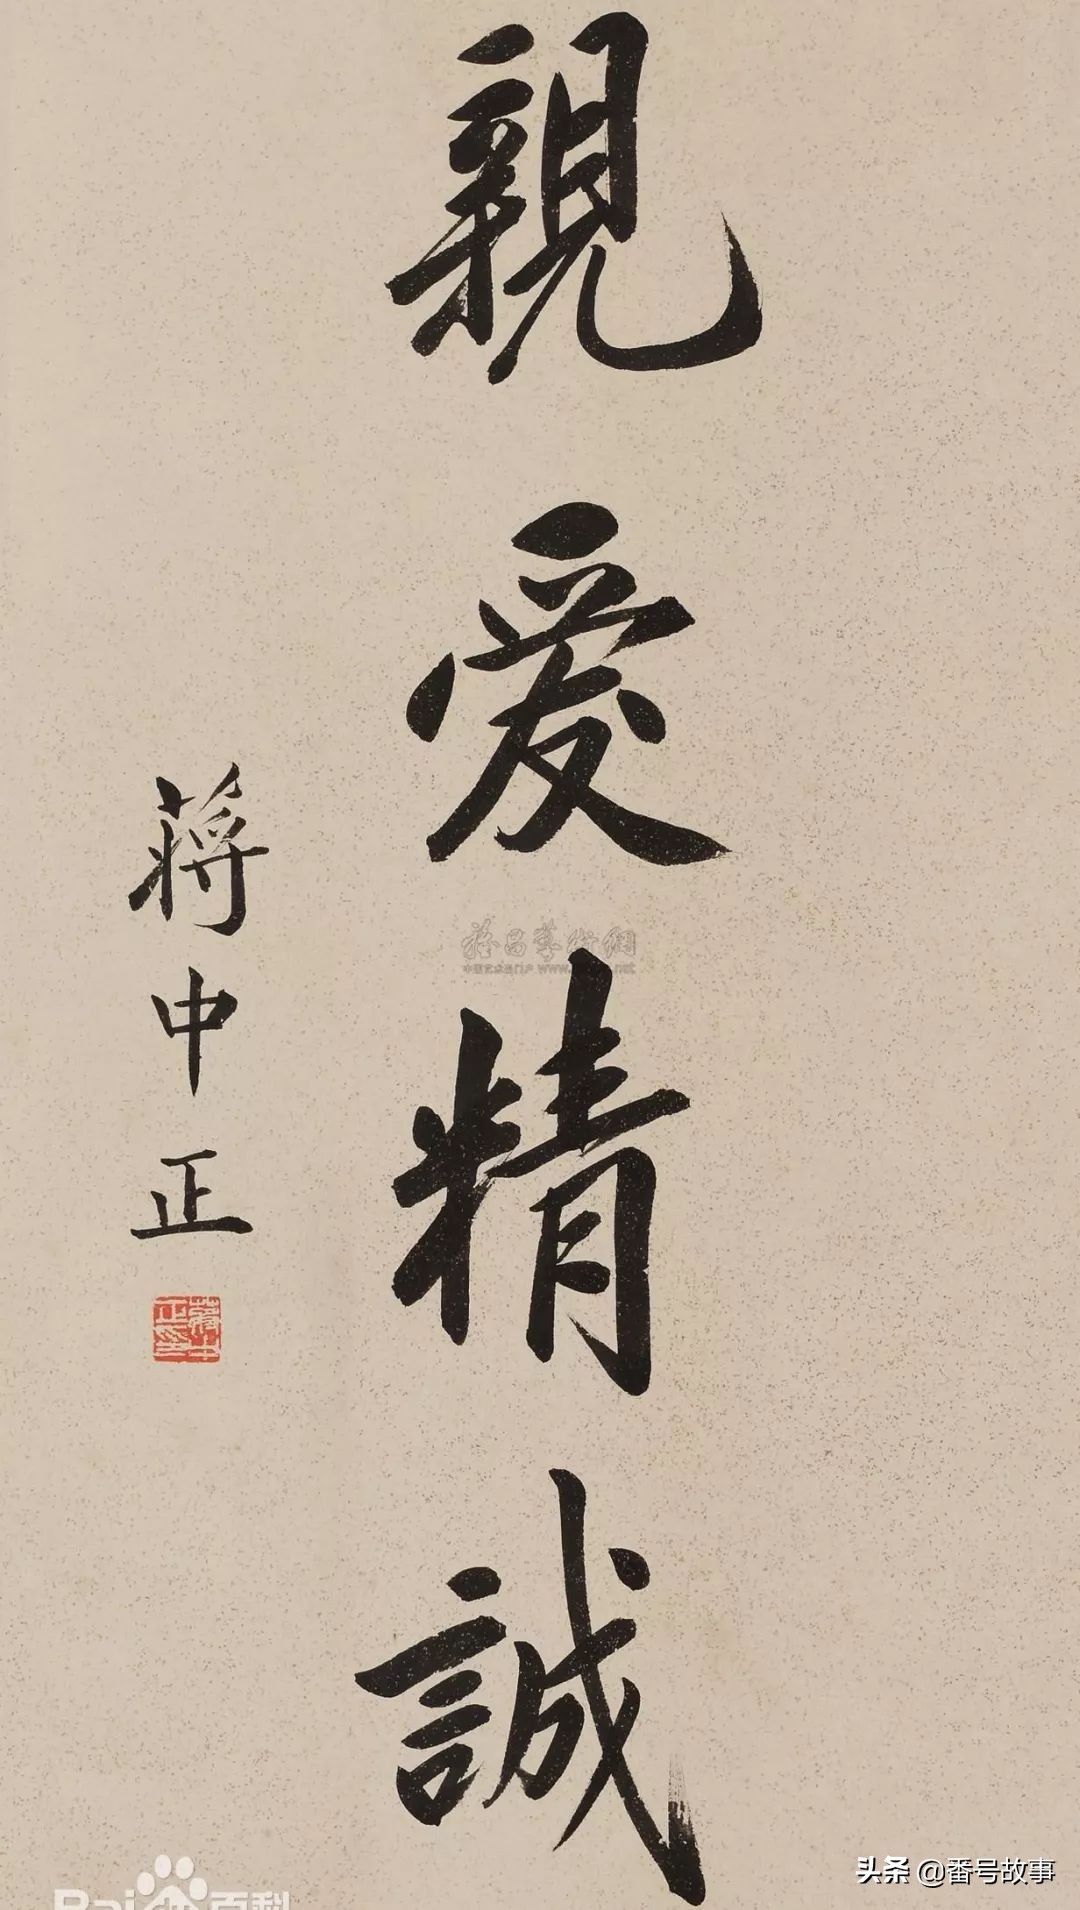 親愛精誠
蔣中正
蔣中正印
头条 @番号故事
Bai 百科